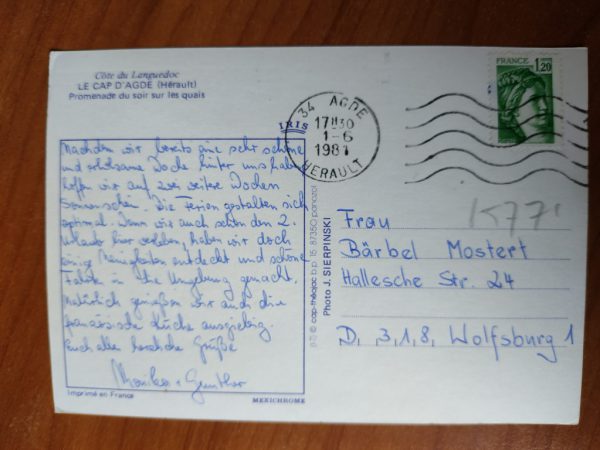 Côte du Languedoc
LE CAP D'AGDE (Hérault)
Promenade du soir sur les quais
IRIS
34 AGDE
17H30
1-6
1981
HERAULT
FRANCE
1,20
Nachdem wir bereits eine sehr schöne
und erholsame Woche hinter uns haben
hoffen wir auf zwei weitere Wochen
Sonnenschein. Die Ferien gestalten sich
optimal. Wenn wir auch schon den 2.
Urlaub hier verleben, haben wir doch
einige Neuigkeiten entdeckt und schöne
Fahrten in die Umgebung gemacht.
Natürlich genießen wir auch die
französische Küche ausgiebig.
Euch alle herzliche Grüße
Monika + Gunther
Imprimé en France
MEXICHROME
cap-théojac b.p. 15 87350 panazol
Photo J. SIERPINSKI
1577
Frau
Bärbel Mostert
Hallesche Str. 24
D, 3,1,8, Wolfsburg 1